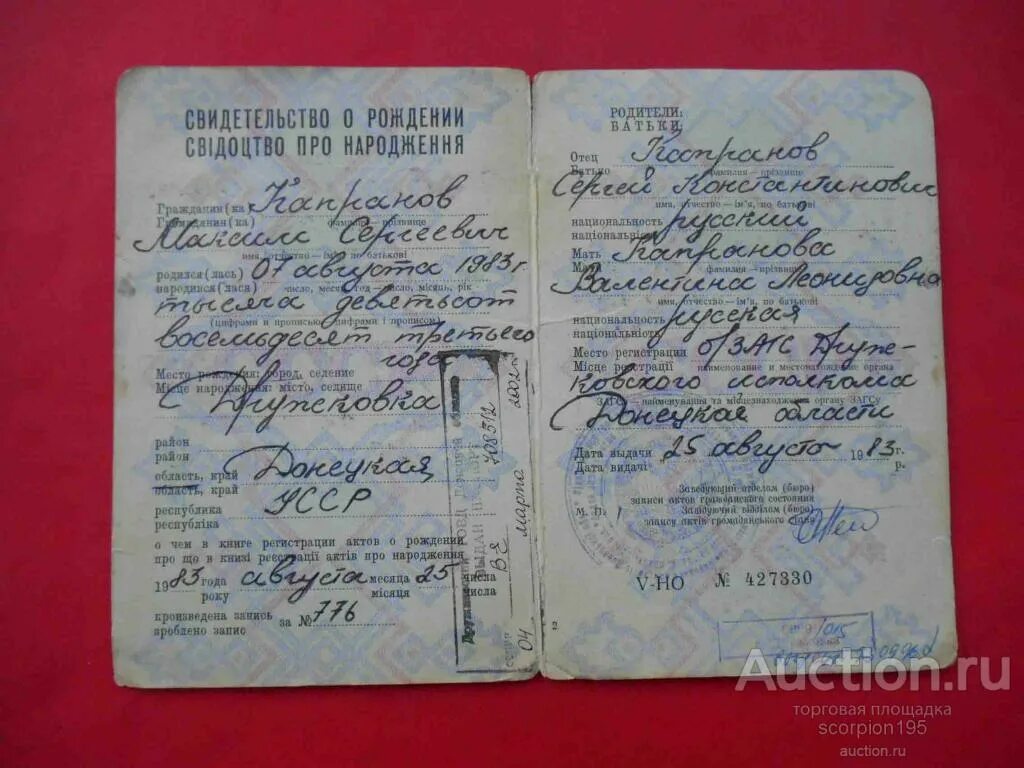 СВИДЕТЕЛЬСТВО О РОЖДЕНИИ
СВІДОЦТВО ПРО НАРОДЖЕННЯ
Гражданин(ка) Капранов
Громадянин(ка) фамилия — прізвище
Максим Сергеевич
имя, отчество — ім'я, по батькові
родился(лась) 07 августа 1983 г.
народився(лася) число, месяц, год — число, місяць, рік
тысяча девятьсот
(цифрами и прописью) (цифрами і прописом)
восемьдесят третьего
года
Место рождения: город, селение
Місце народження: місто, селище
г. Дружковка
район
район
область, край Донецкая
область, край
республика УССР
республіка
о чем в книге регистрации актов о рождении
про що в книзі реєстрації актів про народження
1983 года августа месяца 25 числа
року місяця числа
произведена запись за № 776
зроблено запис
ВЫДАН
708512
ВЕ
серия
04 марта 2002
РОДИТЕЛИ:
БАТЬКИ:
Отец Капранов
Батько фамилия — прізвище
Сергей Константинович
имя, отчество — ім'я, по батькові
национальность русский
національність
Мать Капранова
Мати фамилия — прізвище
Валентина Леонидовна
имя, отчество — ім'я, по батькові
национальность русская
національність
Место регистрации о/ЗАГС Друж-
Місце реєстрації наименование и местонахождение органа
ковского исполкома
ЗАГС — найменування та місцезнаходження органу ЗАГСу
Донецкой области
Дата выдачи 25 августа 1983 г.
Дата видачі р.
Заведующий отделом (бюро)
записи актов гражданского состояния
М. П. Завідуючий відділом (бюро)
запису актів громадянського стану
V-НО № 427330
12
Auction.ru
торговая площадка
scorpion195
auction.ru